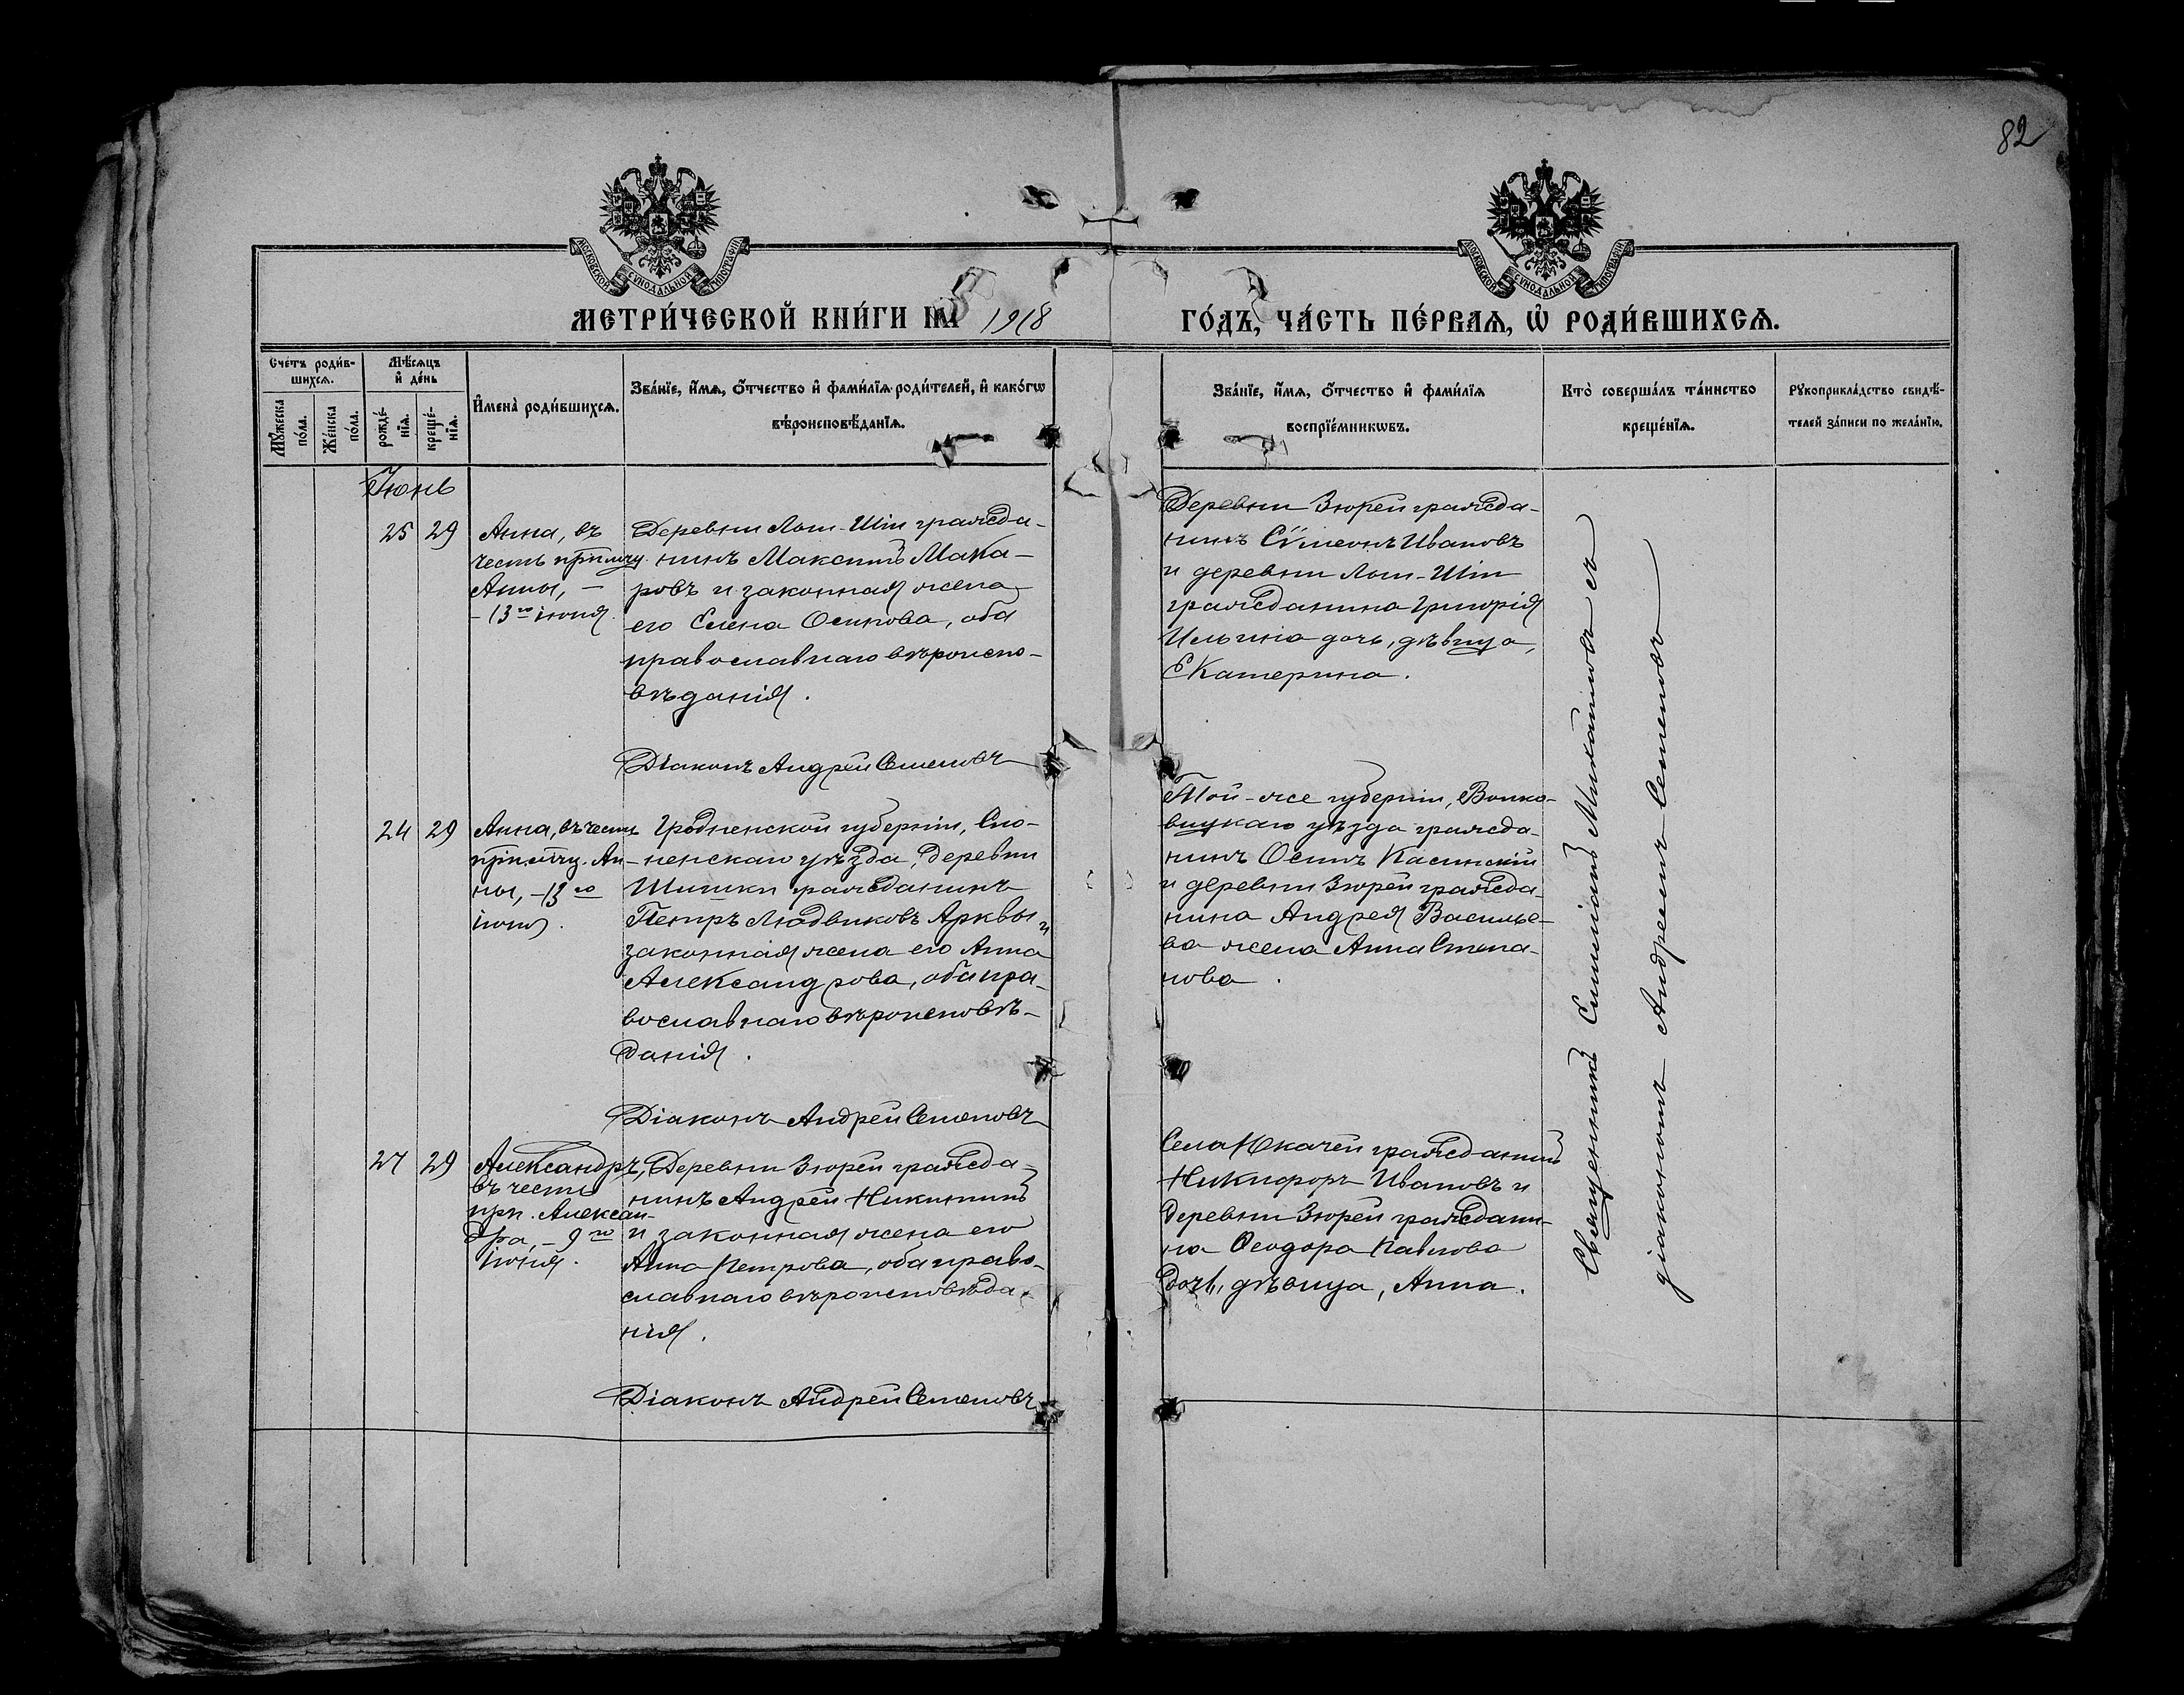 82
МОСКОВСКОЙ СѴНОДАЛЬНОЙ ТИПОГРАФІИ
МОСКОВСКОЙ СѴНОДАЛЬНОЙ ТИПОГРАФІИ
МЕТРИ́ЧЕСКОЙ КНИ́ГИ НА 1918
ГО́ДЪ, ЧА́СТЬ ПЕ́РВАѦ, Ѡ҆ РОДИ́ВШИХСѦ.
Сче́тъ роди́в-
шихсѧ.
Мѣ́сѧцъ
и҆ де́нь
Мꙋ́жеска
по́ла.
Же́нска
по́ла.
рожде́-
нїѧ.
креще́-
нїѧ.
И҆мена̀ роди́вшихсѧ.
Зва́нїе, и҆́мѧ, ѻ҆́тчество и҆ фами́лїѧ роди́телей, и҆ како́гѡ
вѣроисповѣ́данїѧ.
Зва́нїе, и҆́мѧ, ѻ҆́тчество и҆ фами́лїѧ
воспрїе́мникѡвъ.
Кто̀ соверша́лъ та́инство
креще́нїѧ.
Рꙋкоприкла́дство свидѣ́-
телей за́писи по жела́нїю.
Іюнь
25 29
Анна, въ
честь прпмчу.
Анны, –
– 13го іюня.
Деревни Лыш-Шти гражда-
нинъ Максимъ Мака-
ровъ и законная жена
его Елена Осипова, оба
православнаго вѣроиспо-
вѣданія.
Діаконъ Андрей Семеновъ
Деревни Зюрей гражда-
нинъ Сѵмеонъ Ивановъ
и деревни Лыш-Шти
гражданина Григорія
Ильина дочь, дѣвица,
Екатерина.
24 29
Анна, въ честь
прп.мчу. Ан-
ны, – 13го
іюня.
Гродненской губерніи, Сло-
ненскаго уѣзда, деревни
Шишки гражданинъ
Петръ Людвиковъ и
законная жена его Анна
Александрова, оба пра-
вославнаго вѣроисповѣ-
данія.
Діаконъ Андрей Семеновъ
Той-же губерніи, Волко-
выцкаго уѣзда гражда-
нинъ Осипъ
и деревни Зюрей гражда-
нина Андрея Василье-
ва жена Анна Степа-
нова.
27 29
Александръ,
въ честь
прп. Алексан-
дра, – 9го
іюня.
Деревни Зюрей гражда-
нинъ Андрей Никитинъ
и законная жена его
Анна Петрова, оба право-
славнаго вѣроисповѣда-
нія.
Діаконъ Андрей Семеновъ
Села Юкачей гражданинъ
Никифоръ Ивановъ и
деревни Зюрей граждани-
на Ѳеодора Павлова
дочь, дѣвица, Анна.
Священникъ Михайловъ съ
діакономъ Андреемъ Семеновъ